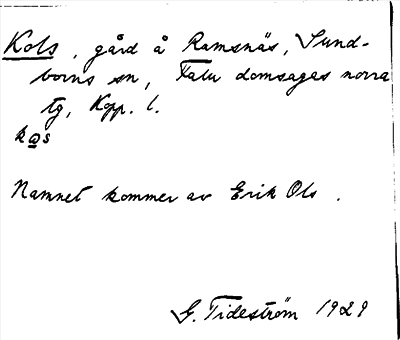 Kols, gård å Ramsnäs, Sund-
borns sn, Falu domsagas norra
tg, Kopp. l.
kɷs
Namnet kommer av Erik Ols.
G. Tideström 1929